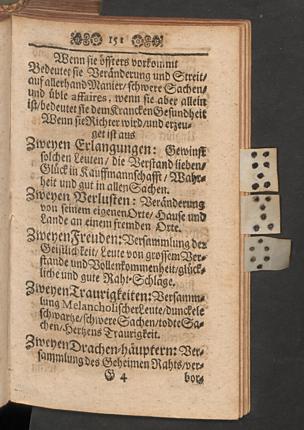 151
Wenn sie öffters vorkommt
Bedeutet sie Veränderung und Streit/
auf allerhand Manier/ schwere Sachen/
und üble affaires, wenn sie aber allein
ist/ bedeutet sie dem Krancken Gesundheit
Wenn sie Richter wird/ und erzeu-
get ist aus
Zweyen Erlangungen: Gewinst
solchen Leuten/ die Verstand lieben/
Glück in Kauffmannschafft/ Wahr-
heit und gut in allen Sachen.
Zweyen Verlusten: Veränderung
von seinem eigenen Orte/ Hause und
Lande an einem fremden Orte.
Zweyen Freuden: Versammlung der
Geistlichkeit/ Leute von grossem Ver-
stande und Vollenkommenheit/ glück-
liche und gute Raht-Schläge.
Zweyen Traurigkeiten: Versamm-
lung Melancholischer Leute/ dunckele
schwartze/ schwere Sachen/ todte Sa-
chen/ Hertzens Traurigkeit.
Zweyen Drachen-häuptern: Ver-
sammlung des Geheimen Rahts/ ver-
4 bor-